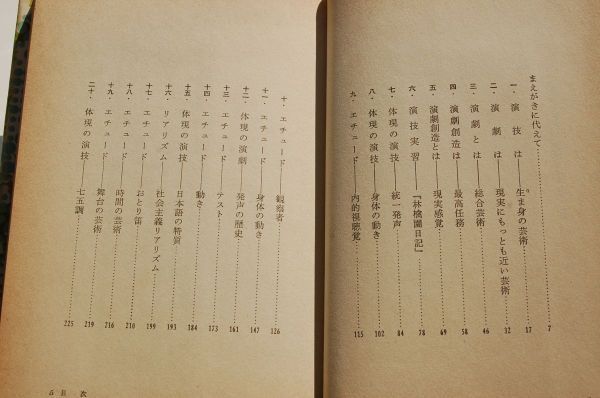 まえがきに代えて……………7
一・演技は――生ま身の芸術……………17
二・演劇は――現実にもっとも近い芸術……………32
三・演劇とは――総合芸術……………46
四・演劇創造は――最高任務……………58
五・演劇創造とは――現実感覚……………69
六・演技実習――『林檎園日記』……………78
七・体現の演技――統一発声……………84
八・体現の演技――身体の動き……………102
九・エチュード――内的視聴覚……………115
十・エチュード――観察者……………126
十一・エチュード――身体の動き……………147
十二・体現の演劇――発声の歴史……………161
十三・エチュード――テスト……………173
十四・エチュード――動き……………184
十五・体現の演技――日本語の特質……………193
十六・リアリズム――社会主義リアリズム……………199
十七・エチュード――おとり笛……………210
十八・エチュード――時間の芸術……………216
十九・エチュード――舞台の芸術……………219
二十・体現の演技――七五調……………225
5 目次